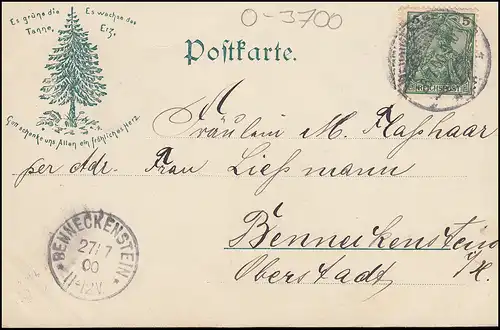 O-3700
Es grüne die Tanne,
Es wachse das Erz,
Gott schenke uns Allen ein fröhliches Herz.
Postkarte.
5 5
REICHSPOST
Fräulein M. Flashaar
per Adr. Frau Liessmann
Benneckenstein
Oberstadt a/H.
BENNECKENSTEIN
27/7
00
11-12V.